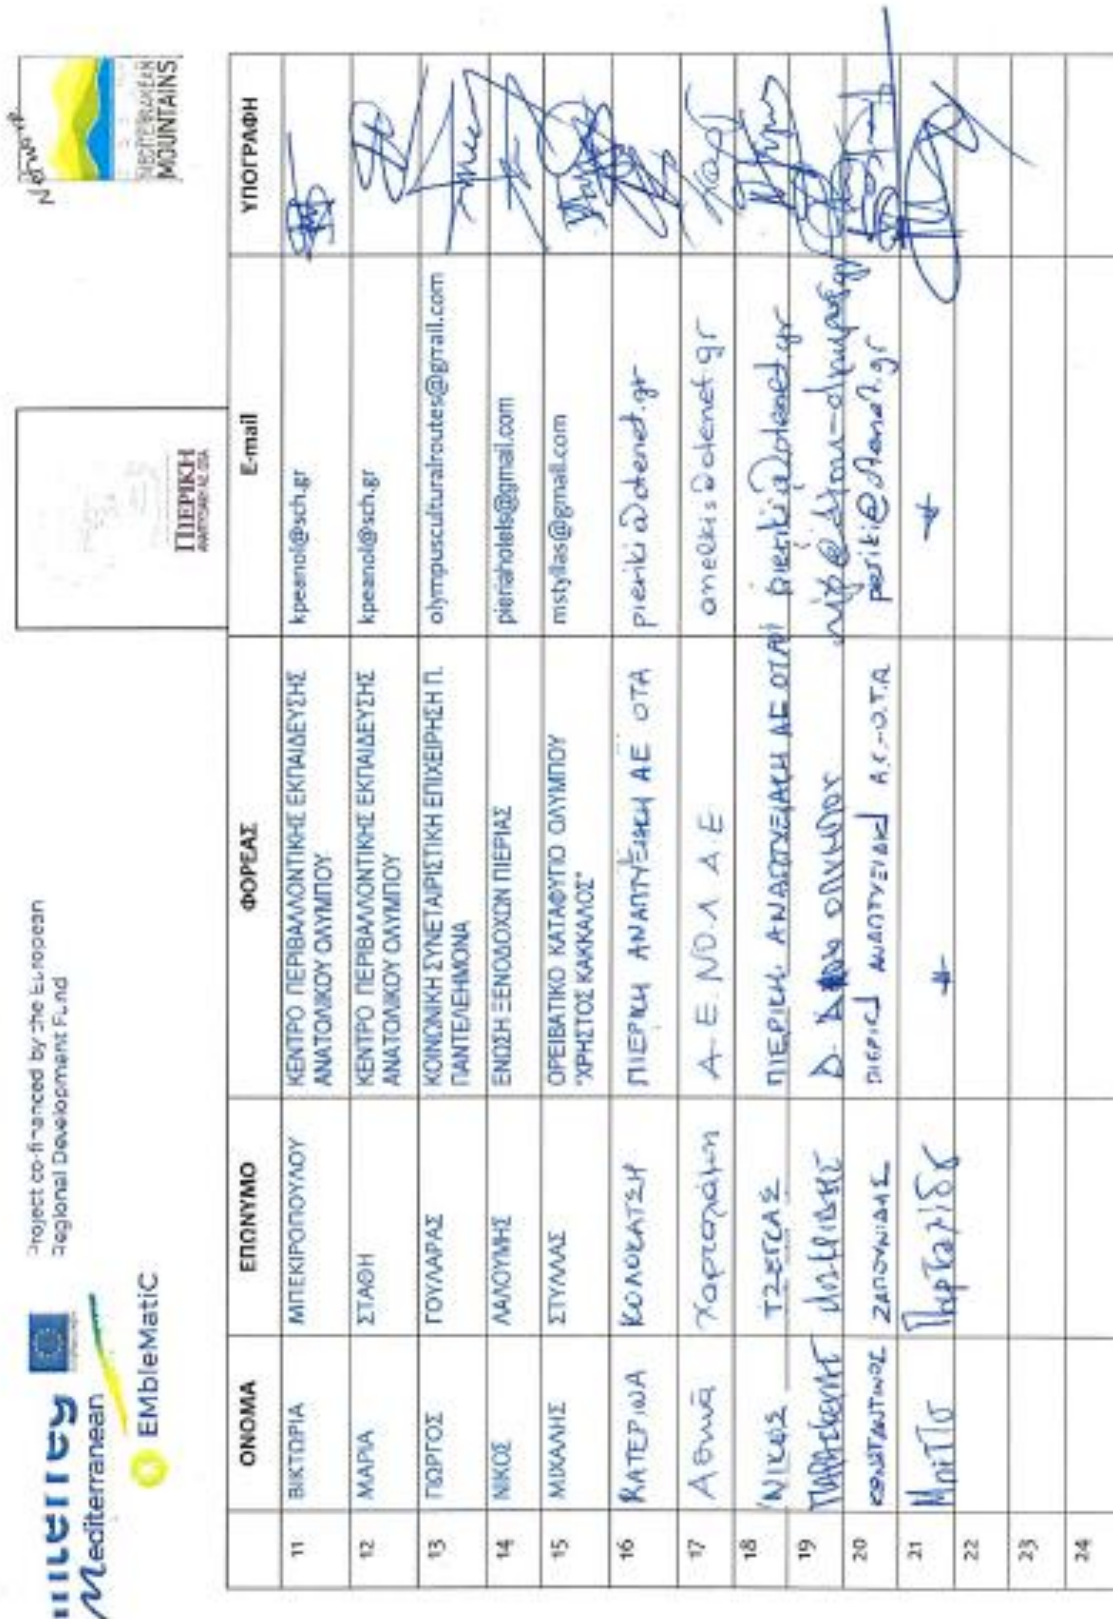 Interreg
Mediterranean
EMbleMatiC
Project co-financed by the European
Regional Development Fund
ΠΙΕΡΙΚΗ
ΑΝΑΠΤΥΞΙΑΚΗ ΑΕ ΟΤΑ
Network
MEDITERRANEAN
MOUNTAINS
ΟΝΟΜΑ ΕΠΩΝΥΜΟ ΦΟΡΕΑΣ E-mail ΥΠΟΓΡΑΦΗ
11 ΒΙΚΤΩΡΙΑ ΜΠΕΚΙΡΟΠΟΥΛΟΥ ΚΕΝΤΡΟ ΠΕΡΙΒΑΛΛΟΝΤΙΚΗΣ ΕΚΠΑΙΔΕΥΣΗΣ kpeanol@sch.gr
ΑΝΑΤΟΛΙΚΟΥ ΟΛΥΜΠΟΥ
12 ΜΑΡΙΑ ΣΤΑΘΗ ΚΕΝΤΡΟ ΠΕΡΙΒΑΛΛΟΝΤΙΚΗΣ ΕΚΠΑΙΔΕΥΣΗΣ kpeanol@sch.gr
ΑΝΑΤΟΛΙΚΟΥ ΟΛΥΜΠΟΥ
13 ΓΙΩΡΓΟΣ ΓΟΥΛΑΡΑΣ ΚΟΙΝΩΝΙΚΗ ΣΥΝΕΤΑΙΡΙΣΤΙΚΗ ΕΠΙΧΕΙΡΗΣΗ Π. olympusculturalroutes@gmail.com
ΠΑΝΤΕΛΕΗΜΟΝΑ
14 ΝΙΚΟΣ ΛΑΛΟΥΜΗΣ ΕΝΩΣΗ ΞΕΝΟΔΟΧΩΝ ΠΙΕΡΙΑΣ pieriahotels@gmail.com
15 ΜΙΧΑΛΗΣ ΣΤΥΛΛΑΣ ΟΡΕΙΒΑΤΙΚΟ ΚΑΤΑΦΥΓΙΟ ΟΛΥΜΠΟΥ mstyllas@gmail.com
"ΧΡΗΣΤΟΣ ΚΑΚΚΑΛΟΣ"
16 ΚΑΤΕΡΙΝΑ ΚΟΛΟΚΑΤΣΗ ΠΙΕΡΙΚΗ ΑΝΑΠΤΥΞΙΑΚΗ ΑΕ ΟΤΑ pieriki@otenet.gr
17 Αθηνά Χαρταλάμη Α.Ε.ΝΟ.Λ Α.Ε anelkis@otenet.gr
18 ΝΙΚΟΣ ΤΖΕΓΚΑΣ ΠΙΕΡΙΚΗ ΑΝΑΠΤΥΞΙΑΚΗ ΑΕ ΟΤΑ pieriki@otenet.gr
19 ΠΑΡΑΣΚΕΥΑΣ Δ. ΟΛΥΜΠΟΥ
20 ΚΩΝΣΤΑΝΤΙΝΟΣ ΖΑΠΟΥΝΙΔΗΣ ΠΙΕΡΙΚΗ ΑΝΑΠΤΥΞΙΑΚΗ Α.Ε.-Ο.Τ.Α periki@otenet.gr
21
22
23
24